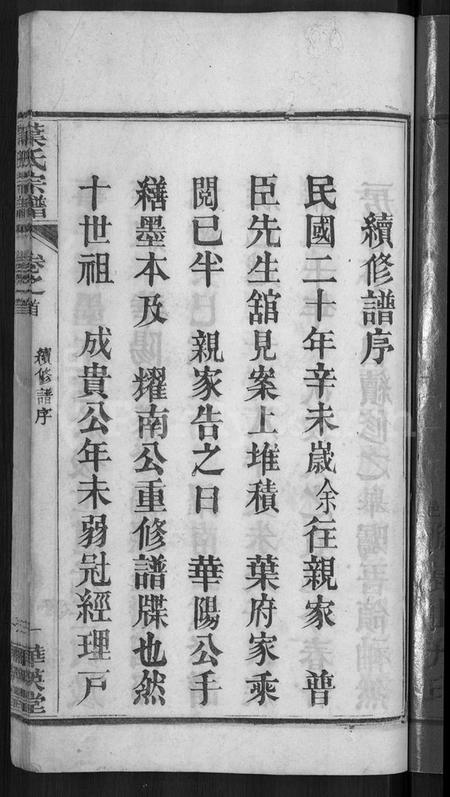 續修譜序
民國二十年辛未歲余往親家　普
臣先生舘見案上堆積　葉府家乘
閱已半　親家告之曰　華陽公手
繕墨本及　耀南公重修譜牒也然
十世祖　成貴公年未弱冠經理戸
葉氏宗譜
卷之首
續修譜序
一